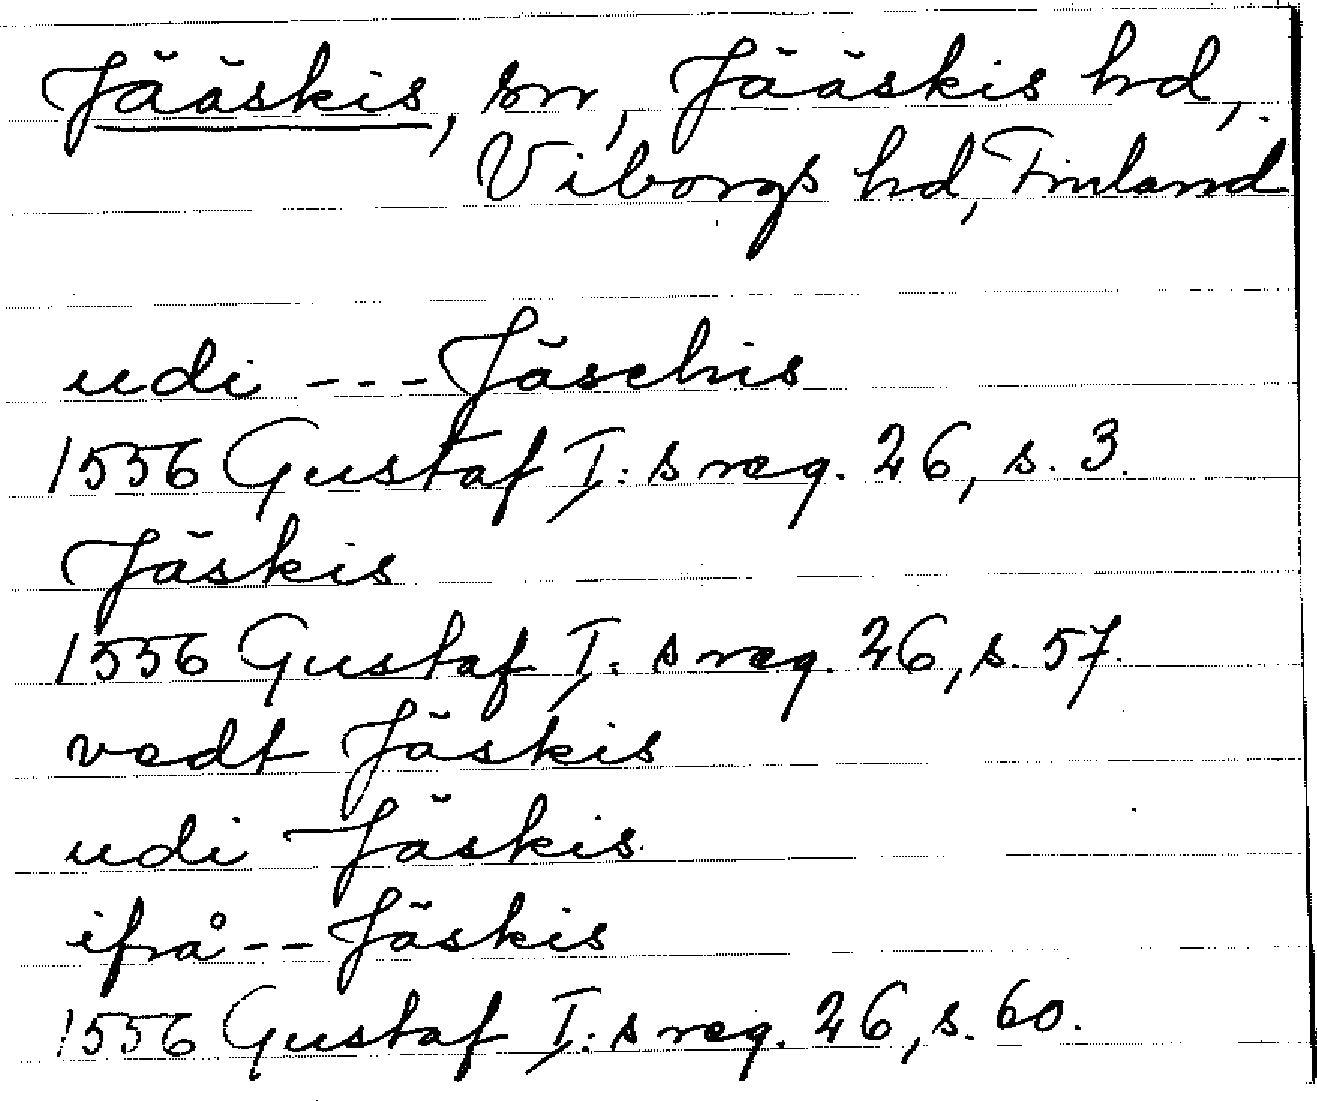 Jääskis, sn, Jääskis hd,
Viborgs hd, Finland
udi --- Jäschis
1556 Gustaf I:s reg. 26, s. 3.
Jäskis
1556 Gustaf I:s reg. 26, s. 57.
vedt Jäskis
udi Jäskis
ifrå -- Jäskis
1556 Gustaf I:s reg. 26, s. 60.